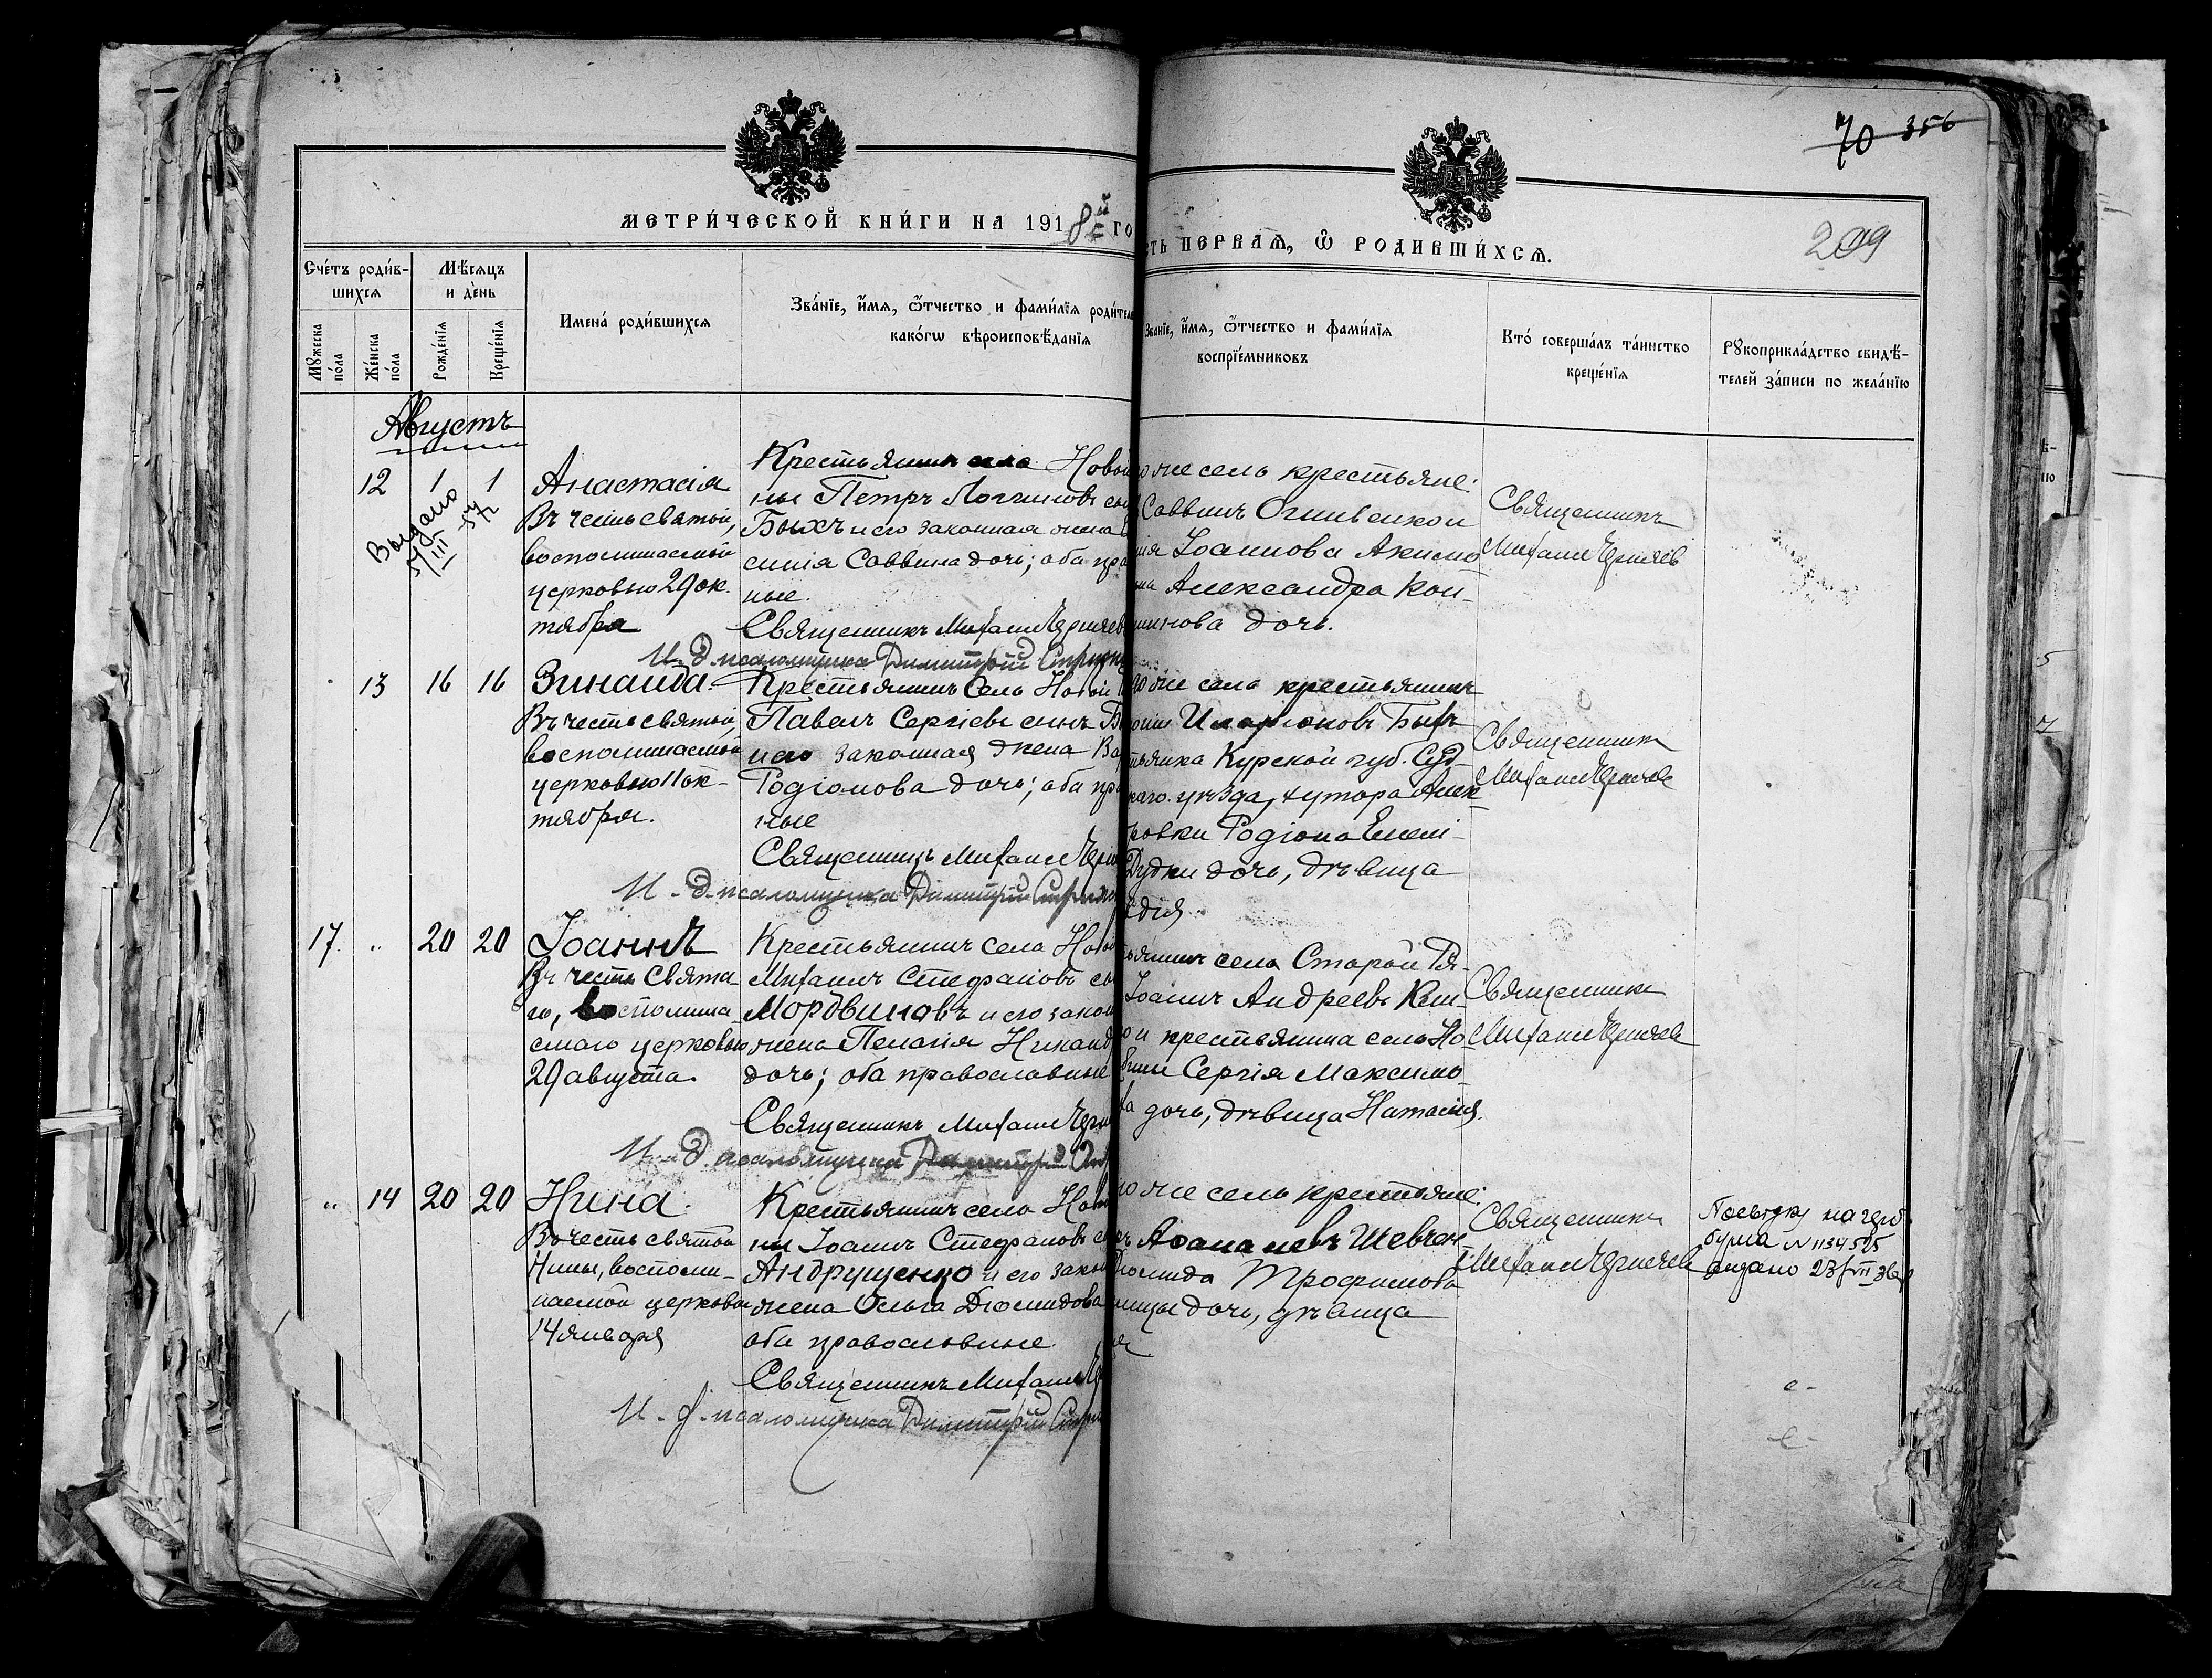 70 356
209
МЕТРИ́ЧЕСКОЙ КНИ́ГИ НА 1918й ГО
СТЬ ПЕРВАѦ, Ѡ҆ РОДИВШИ́ХСѦ.
Сче́тъ роди́в-
шихсѧ
Мꙋжеска по́ла
Же́нска по́ла
Мѣ́сѧцъ
и де́нь
Рожде́нїѧ
Креще́нїѧ
Имена́ роди́вшихсѧ
Зва́нїе, и҆́мѧ, ѻ҆́тчество и фами́лїѧ роди́тел
како́гѡ вѣроисповѣ́данїѧ
Зва́нїе, и҆́мѧ, ѻ҆́тчество и фами́лїѧ
воспрїе́мниковъ
Кто́ соверша́лъ та́инство
креще́нїѧ
Рꙋкоприкла́дство свидѣ́-
телей за́писи по жела́нїю
Августъ
12 1 1
Выдано
III
Анастасія
Въ честь святой,
воспоминаемой
церковью 29 ок-
тября
Крестьянинъ села Новой
ны Петръ Логгиновъ сы
Быхъ и его законная жена
синія Саввина дочь; оба пра
ные.
Священникъ Михаилъ Черняев
И. д. псаломщика Димитрій
же селъ крестьяне:
Саввинъ Огнивенко и
ія Іоаннова Акимо
на Александра Кон-
нова дочь.
Священникъ
Михаилъ Черняевъ
13 16 16
Зинаида.
Въ честь святой,
воспоминаемой
церковью 11 ок-
тября.
Крестьянинъ села Новой
Павелъ Сергіевъ сынъ Б
и его законная жена Вар
Родіонова дочь; оба пра
ные
Священникъ Михаилъ Черн
И. д. псаломщика Димитрій
же села крестьянинъ
Иларіоновъ Быхъ
тьянка Курской губ. Суд-
каго уѣзда, хутора Алек
ровки Родіона Емелі-
Дудки дочь, дѣвица
дія
Священникъ
Михаилъ Черняевъ
17. „ 20 20
Іоаннъ
Въ честь свята-
го, воспомина-
емаго церковью
29 августа.
Крестьянинъ села Новой
Михаилъ Стефановъ сы
Мордвиновъ и его закон
жена Пелагія Никанд
дочь; оба православные
Священникъ Михаилъ Черн
И. д. псаломщика Димитрій
ьянинъ села Старой Ря-
Іоаннъ Андреевъ
о и крестьянина села Но-
Сергія Максимо-
ка дочь, дѣвица Наталія.
Священникъ
Михаилъ Черняевъ
„ 14 20 20
Нина.
Въ честь святой
Нины, воспоми-
наемой церковью
14 января
Крестьянинъ села Новой
ны Іоаннъ Стефановъ сы
Андрущенко и его закон
жена Ольга Діомидова
оба православные.
Священникъ Михаилъ Че
И. д. псаломщика Димитрій
же селъ крестьяне:
Аѳанасіевъ Шевчен-
Діомида Трофимова
ницы дочь, дѣвица
Священникъ
Михаилъ Черняевъ
на герб.
бумага № 1134525
выдано 23/VII 38